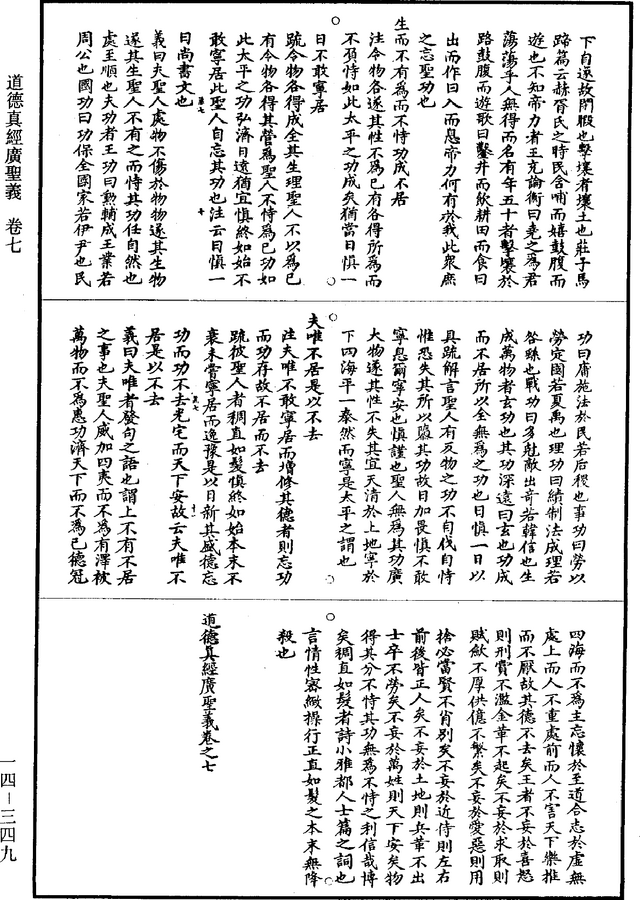 道德真經廣聖義　卷七
一四—三四九
下自遂故閑暇也擊壤者壤土也莊子馬
蹄篇云赫胥氏之時民含哺而嬉鼓腹而
遊也不知帝力者王充論衡曰堯之為君
蕩蕩乎人無得而名有年五十者擊壤於
路鼓腹而遊歌曰鑿井而飲耕田而食日
出而作日入而息帝力何有於我此衆庶
之忘聖功也
生而不有為而不恃功成不居
注令物各遂其性不為已有各得所為而
不矜恃如此太平之功成矣猶當日慎一
日不敢寧居
疏令物各得成全其生理聖人不以為已
有令物各得其營為聖人不恃為已功如
此太平之功弘濟日遠猶宜慎終如始不
敢寧居此聖人自忘其功也注云日慎一
日尚書文也
義曰夫聖人處物不傷於物物遂其生物
遂其生聖人不有之而恃其功任自然也
處王順也夫功者王功曰勳輔成王業若
周公也國功曰功保全國家若伊尹也民
功曰庸施法於民若后稷也事功曰勞以
勞定國若夏禹也理功曰績制法成理若
咎繇也戰功曰多剋敵出奇若韓信也生
成萬物者玄功也其功深遠曰玄也功成
而不居所以全無為之功也日慎一日以
具疏解言聖人有及物之功不自伐自恃
惟恐失其所以隳其功故日加畏慎不敢
寧息爾寧安也慎謹也聖人無為其功廣
大物遂其性不失其宜天清於上地寧於
下四海平一泰然而寧是太平之謂也
夫唯不居是以不去
注夫唯不敢寧居而增修其德者則忘功
而功存故不居而不去
疏彼聖人者稠直如髮慎終如始本末不
衰未嘗寧居而逸豫是以日新其盛德忘
功而功不去光宅而天下安故云夫唯不
居是以不去
義曰夫唯者發句之語也謂上不有不居
之事也夫聖人威加四夷而不為有澤被
萬物而不為惠功濟天下而不為已德冠
四海而不為主忘懷於至道合志於虛無
處上而人不重處前而人不害天下樂推
而不厭故其德不去矣王者不妄於喜怒
則刑賞不濫金革不起矣不妄於求取則
賦斂不厚供億不繁矣不妄於愛惡則用
捨必當賢不肖別矣不妄於近侍則左右
前後皆正人矣不妄於土地則兵革不出
士卒不勞矣不妄於萬姓則天下安矣物
得其分不恃其功無為不恃之利信哉博
矣稠直如髮者詩小雅都人士篇之詞也
言情性密緻操行正直如髮之本末無降
殺也
道德真經廣聖義卷之七